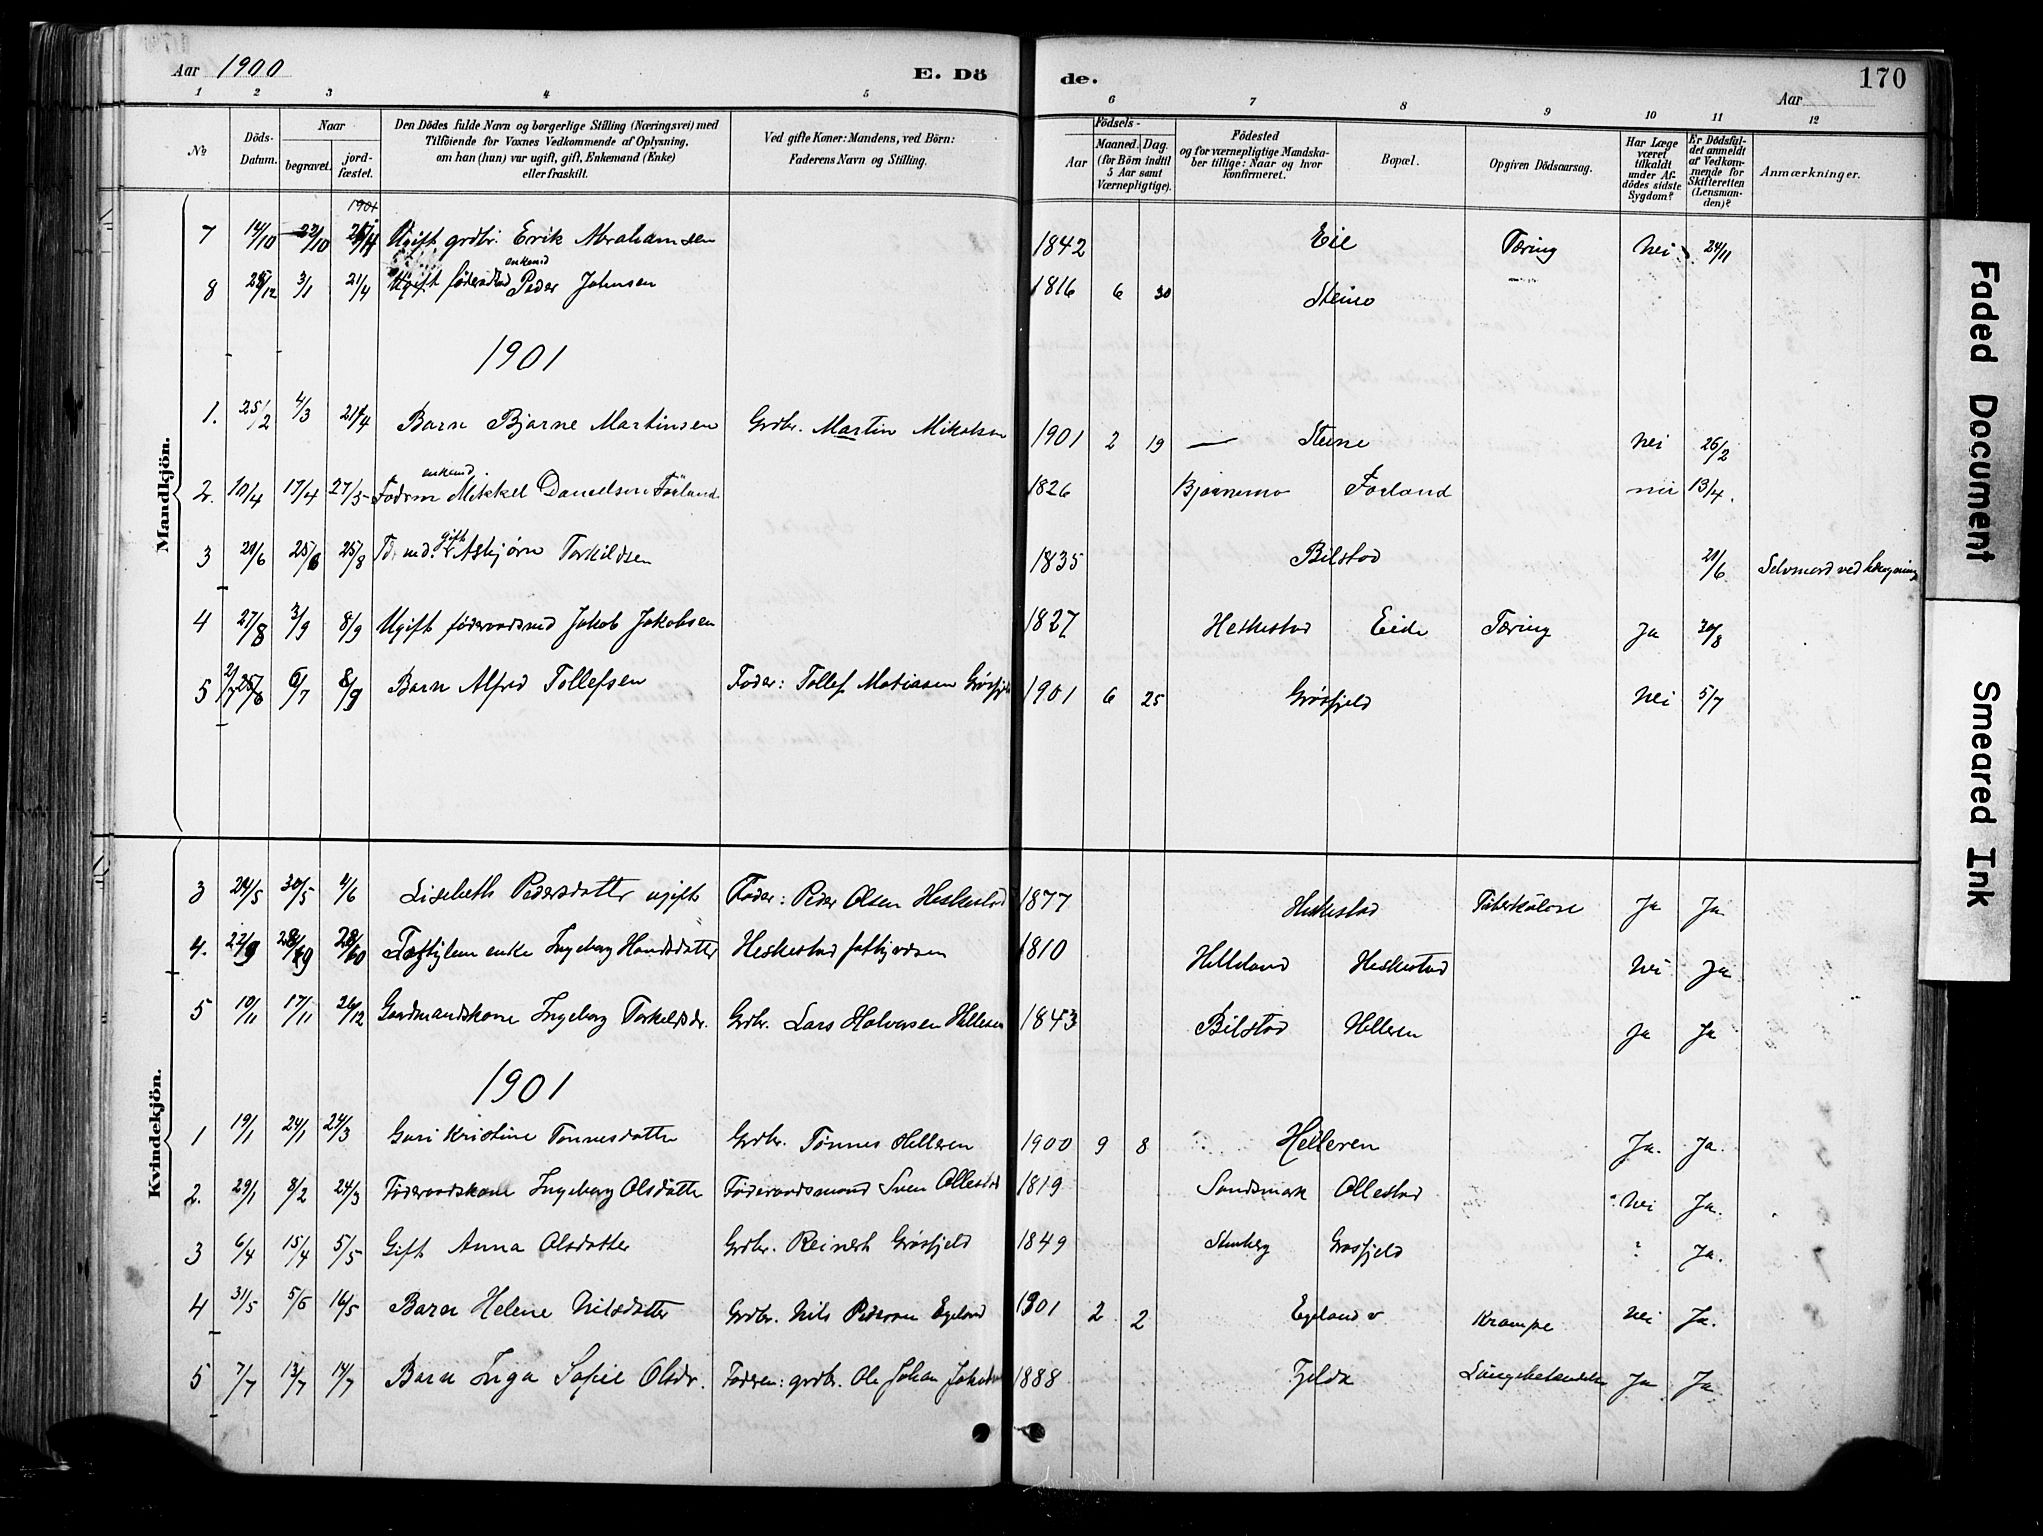 Aar 1900 E. Dö de. Aar 170
1 2 3 4 5 6 7 8 9 10 11 12
№ Döds-Datum. Naar begravet. jordfæstet. Den Dödes fulde Navn og borgerlige Stilling (Næringsvei) med Tilföiende for Voxnes Vedkommende af Oplysning, om han (hun) var ugift, gift, Enkemand (Enke) eller fraskilt. Ved gifte Koner: Mandens, ved Börn: Faderens Navn og Stilling. Födsels- Aar Maaned. Dag. (for Börn indtil 5 Aar samt Værnepligtige). Födested og for værnepligtige Mandskaber tillige: Naar og hvor konfirmeret. Bopæl. Opgiven Dödsaarsag. Har Læge været tilkaldt under Afdödes sidste Sygdom? Er Dödsfaldet anmeldt af Vedkommende for Skifteretten (Lensmanden)? Anmærkninger.
Mandkjön.
1901
7 14/10 22/10 Ugift grdbr. Erik Abrahamsen 1842 Eie Tæring Nei 24/11
enkemd
8 28/12 3/1 21/4 Peder Johnsen 1816 6 30 Steino
1901
1. 25/2 4/3 21/4 Barn Bjarne Martinsen Grdbr. Martin Mikalsen 1901 2 19 — Steine Nei 26/2
enkemd
2. 10/4 17/4 27/5 Mikkel Danielsen Førland 1826 Bjørnemo Førland nei 13/4.
gift
3 20/6 25/6 25/8 Asbjørn Torkildsen 1835 Bilstad 21/6 Selvmord ved hængning
4 27/8 3/9 8/9 Ugift føderaadsmd Jakob Jakobsen 1827 Heskestad Eide Tæring Ja 30/8
5 6/7 8/9 Barn Alfred Tollefsen Fader: Tollef Matiasen Grøsfjeld 1901 6 25 Grøsfjeld Nei 5/7
Kvindekjön.
3 24/5 30/5 4/6 Lisebeth Pedersdatter ugift Fader: Peder Olsen Heskestad 1877 Heskestad Tuberkulose Ja Ja
4. 22/9 enke Ingeborg Hansdatter Heskestad 1810 Helleland Heskestad Nei Ja
5 10/11 17/11 26/12 Gaardmandskone Ingeborg Torkelsdr. Grdbr. Lars Halvorsen Helleren 1843 Bilstad Helleren Ja Ja
1901
1 19/1 24/1 24/3 Guri Kristine Tønnesdatter Grdbr. Tönnes Helleren 1900 9 8 Helleren Ja. Ja.
2. 29/1 8/2 24/3 Føderaadskone Ingeborg Olsdatter Føderaadsmand Sven Ollestad 1819 Sandsmark Ollestad Nei Ja.
3 6/4 15/4 5/5 Gift Anna Olsdatter Grdbr. Reinert Grøsfjeld 1849 Stenberg Grøsfjeld ? Ja.
4 31/5 5/6 16/5 Barn Helene Nilsdatter Grdbr. Nils Pedersen Egeland 1901 2 2 Egeland v Krampe Nei Ja.
5 7/7 13/7 14/7 Barn Inga Sofie Olsdr. Faderen: grdbr. Ole Johan Jakobsen 1888 Ja Ja
Faded Document
Smeared Ink